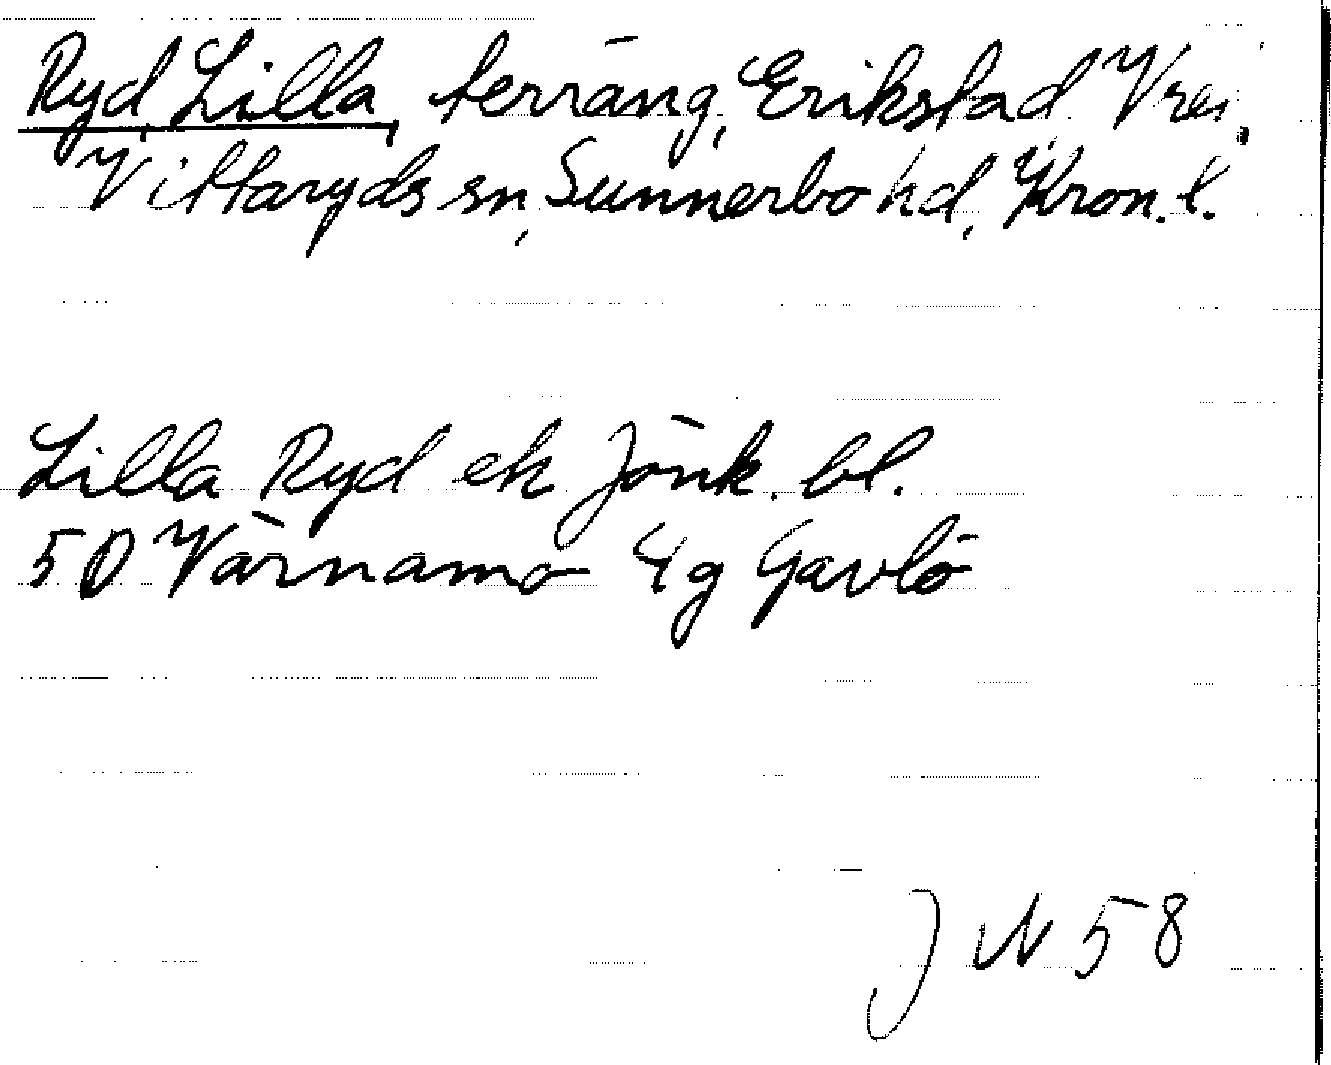 Ryd, Lilla, terräng, Erikstad Vre,
Vittaryds sn, Sunnerbo hd, Kron. l.
Lilla Ryd ek Jönk. bl.
5D Värnamo 4g Gavlö
J W 58